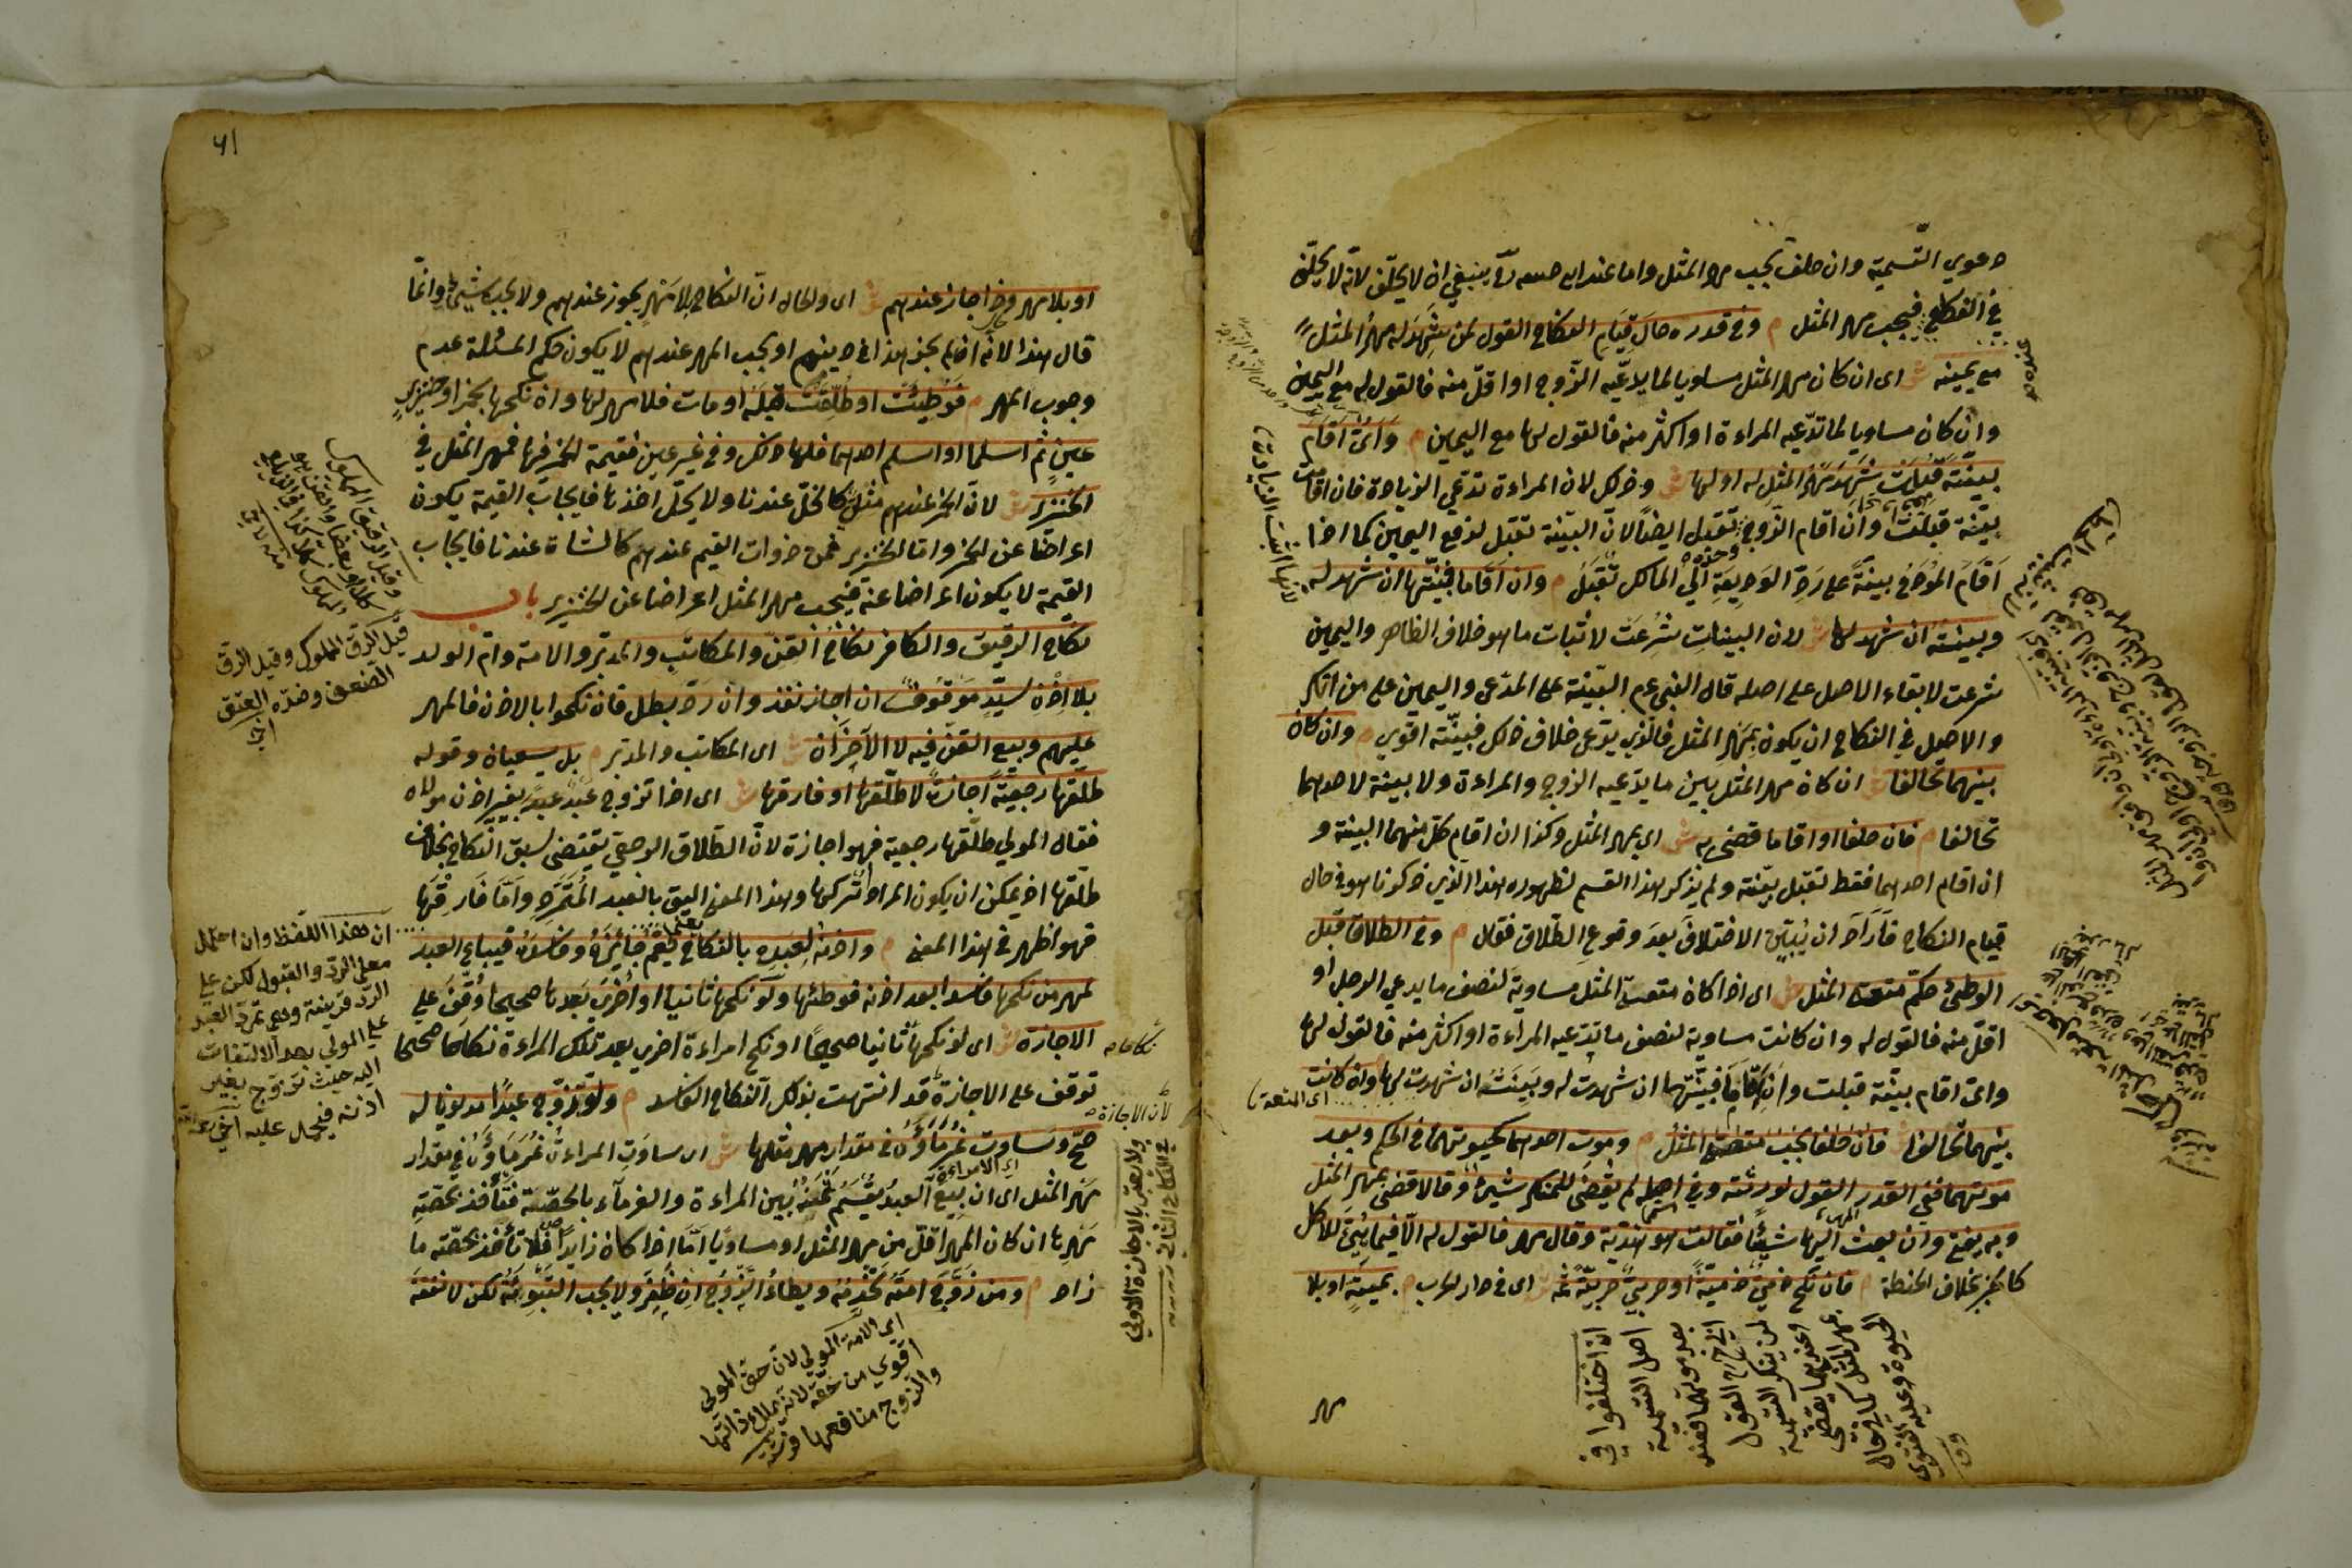 دعوي التسمية وان حلف يجب مهر المثل واما عند ابي حنيفة رح ينبغي ان لا يحلف لانه لا يحلف
في النكاح فيجب مهر المثل م وفي قدره حال قيام النكاح القول لمن شهد له مهر المثل
مع يمينه ش اى ان كان مهر المثل مساويا لما يدعيه الزوج او اقل منه فالقول له مع اليمين
وان كان مساويا لما تدعيه المراءة او اكثر منه فالقول لها مع اليمين م واىّ اقام
بينة قبلت شهد مهر المثل له او لها ش وذلك لان المراءة تدعي الزيادة فان اقامت
بينة قبلت وان اقام الزوج تقبل ايضا لان البينة تقبل لدفع اليمين كما اذا
اقام المودَع بينة على رد الوديعة الي المالك تقبل م وان اقاما فبينتها ان شهد له
وبينته ان شهد لها ش لان البينات شرعت لاثبات ما هو خلاف الظاهر واليمين
شرعت لابقاء الاصل على اصله قال النبي عم البينة على المدعى واليمين على من انكر
والاصل في النكاح ان يكون بمهر المثل فالذي يدعى خلاف ذلك فبينته اقوي م وان كان
بينهما تحالفا ش ان كان مهر المثل بين ما يدعيه الزوج والمراءة ولا بينة لاحدهما
تحالفا م فان حلفا او اقاما قضى به ش اى بمهر المثل وكذا ان اقام كل منهما البينة و
ان اقام احدهما فقط تقبل بينته ولم يذكر هذا القسم لظهوره هذا الذي ذكرنا هو في حال
قيام النكاح فاراد ان يبين الاختلاف بعد وقوع الطلاق فقال م وفي الطلاق قبل
الوطئ حكم متعة المثل ش اى اذا كان متعة المثل مساوية لنصف ما يدعي الرجل او
اقل منه فالقول له وان كانت مساوية لنصف ما تدعيه المراءة او اكثر منه فالقول لها
واىّ اقام بينة قبلت وان اقاما فبينتها ان شهدت له وبينته ان شهدت لها وان كانت
بينهما تحالفا فان حلفا يجب متعة المثل م وموت احدهما كحيوتهما في الحكم وبعد
موتهما ففي القدر القول لورثته وفي اصله لم يقض للمنكر شيئا وقالا قضى بمهر المثل
وبه يفتى وان بعث اليها شيئا فقالت هو هدية وقال مهر فالقول له الا فيما هيئ للاكل
كالخبز بخلاف الحنطة م فان نكح ذمي ذمية او حربي حربية ثمه ش اى في دار الحرب م بميتة او بلا
عنده
لانها اثبتت الزيادة
اى المتعة
ان اختلفوا في
اصل التسمية
بعد موتهما فعند
ابي ح رح القول
لمن ينكر التسمية
وعندهما يقضى
بمهر المثل كما في حال
الحيوة وعليه الفتوى
وق
مهر
٦١
او بلا مهر وذا جاز عندهم ش اى والحال ان النكاح بلا مهر يجوز عندهم ولا يجب شيئ وانما
قال هذا لانه اذا لم يجز هذا في دينهم او يجب المهر عندهم لا يكون حكم المسئلة عدم
وجوب المهر م فوطئت او طلقت قبله او مات فلا مهر لها وان نكحها بخمر او خنزير
عين ثم اسلما او اسلم احدهما فلها ذلك وفي غير عين فقيمة الخمر فيها فمهر المثل في
الخنزير ش لان الخمر عندهم مثلى كالخل عندنا ولا يحل اخذها فايجاب القيمة يكون
اعراضا عن الخمر واما الخنزير فمن ذوات القيم عندهم كالشاة عندنا فايجاب
القيمة لا يكون اعراضا عنه فيجب مهر المثل اعراضا عن الخنزير باب
نكاح الرقيق والكافر نكاح القن والمكاتب والمدبر والامة وام الولد
بلا اذن سيد موقوف ان اجاز نفذ وان رد بطل فان نكحوا بالاذن فالمهر
عليهم وبيع القن فيه لا الآخران ش اى المكاتب والمدبر م بل يسعيان وقوله
طلقها رجعية اجازة لا طلقها او فارقها ش اى اذا تزوج عبد بغير اذن مولاه
فقال المولي طلقها رجعية فهو اجازة لان الطلاق الرجعي يقتضى سبق النكاح بخلاف
طلقها اذ يمكن ان يكون المراد اتركها وهذا المعنى اليق بالعبد المتمرد واما فارقها
فهو اظهر في هذا المعنى م واذنه لعبده بالنكاح يعم جائزه وفاسده فيباع العبد
لمهر من نكحها فاسدا بعد اذنه فوطئها ولو نكحها ثانيا او اخرى بعدها صحيحا وقف على
الاجازة ش اى لو نكحها ثانيا صحيحا او نكح امراءة اخري بعد تلك المراءة نكاحا صحيحا
توقف على الاجازة قد انتهت بذلك النكاح الفاسد م ولو زوج عبدا مديونا له
صح وساوت غرماؤه في مقدار مهر مثلها ش اى ساوت المراءة غرماؤه في مقدار
مهر المثل اى ان بيع العبد يقسم ثمنه بين المراءة والغرماء بالحصة فتأخذ بحصة
مهرها ان كان المهر اقل من مهر المثل او مساويا اما اذا كان زايدا فلا تأخذ بحصة ما
زاد م ومن زوج امته تخدمه ويطاء الزوج ان ظفر ولا يجب التبوئة لكن لا نفقة
قيل الرق المملوك وقيل الرق
الضعف وضده العتق
ان هذا اللفظ وان احتمل
معنى الرد والقبول لكن على
الرد قرينة وهي تمرد العبد
على المولي بعدم الالتفات
اليه حيث تزوج بغير
اذنه فيحمل عليه
نكاحا
لان الاجازة
اى الامة المولي لان حق المولي
اقوي من حقه لانه يملك ذاتها
والزوج منافعها